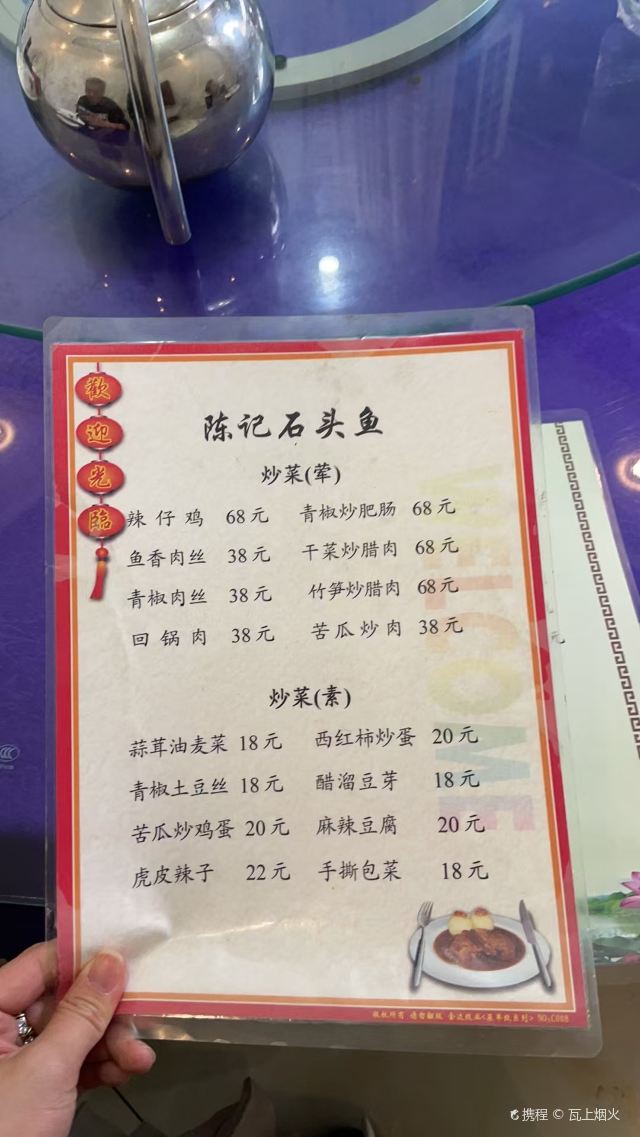 歡迎光臨
陈记石头鱼
炒菜(荤)
辣仔鸡 68元 青椒炒肥肠 68元
鱼香肉丝 38元 干菜炒腊肉 68元
青椒肉丝 38元 竹笋炒腊肉 68元
回锅肉 38元 苦瓜炒肉 38元
炒菜(素)
蒜茸油麦菜 18元 西红柿炒蛋 20元
青椒土豆丝 18元 醋溜豆芽 18元
苦瓜炒鸡蛋 20元 麻辣豆腐 20元
虎皮辣子 22元 手撕包菜 18元
WELCOME
版权所有 请勿翻版
携程 © 瓦上烟火